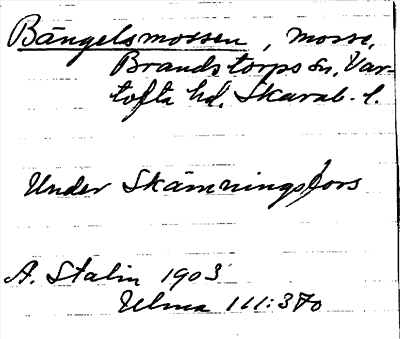 Bängelsmossen, mosse,
Brandstorps sn, Var-
tofta hd, Skarab. l.
Under Skämningsfors
A. Stalin 1903
Ulma 111:370